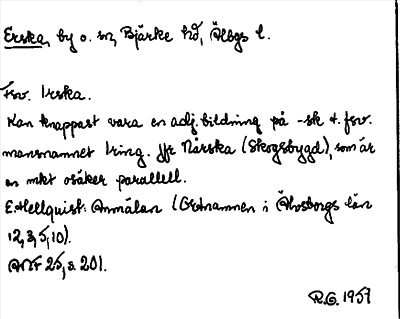 Erska, by o. sn, Bjärke hd, Älvgs l.
Fsv. Irska.
Kan knappast vara en adj. bildning på -sk t. fsv.
mansnamnet Iring. Jfr Nårska (Skogsbygd), som är
en mkt osäker parallell.
E. Hellquist: Anmälan (Ortnamnen i Älvsborgs län
12, 3, 5, 10).
ANF 25, s. 201.
R.G. 1957